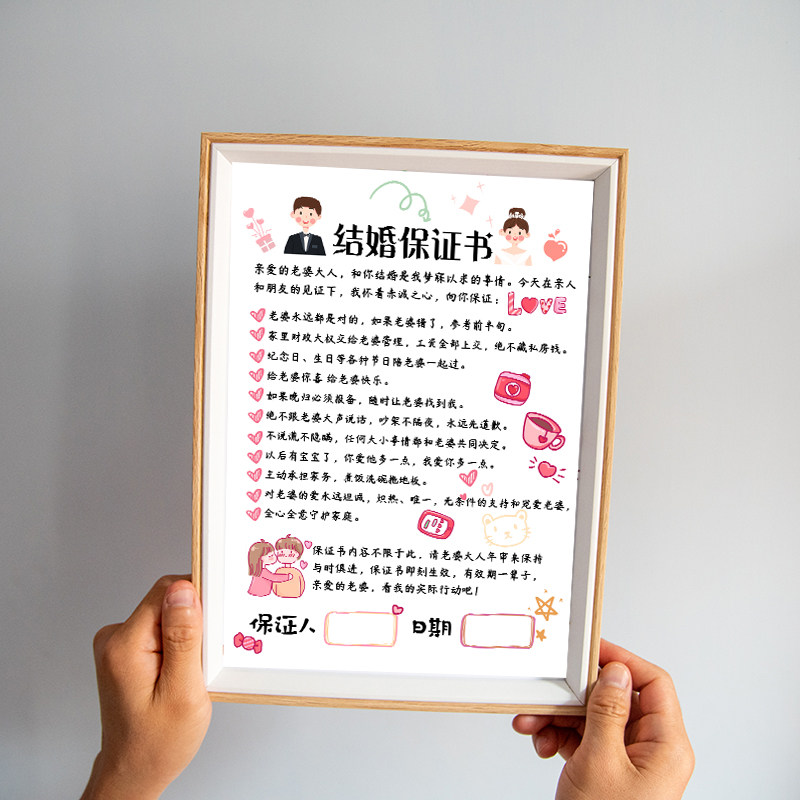 结婚保证书
亲爱的老婆大人，和你结婚是我梦寐以求的事情。今天在亲人
和朋友的见证下，我怀着赤诚之心，向你保证：
LOVE
老婆永远都是对的，如果老婆错了，参考前半句。
家里财政大权交给老婆管理，工资全部上交，绝不藏私房钱。
纪念日、生日等各种节日陪老婆一起过。
给老婆惊喜 给老婆快乐。
如果晚归必须报备，随时让老婆找到我。
绝不跟老婆大声说话，吵架不隔夜，永远先道歉。
不说谎不隐瞒，任何大小事情都和老婆共同决定。
以后有宝宝了，你爱他多一点，我爱你多一点。
主动承担家务，煮饭洗碗拖地板。
对老婆的爱永远坦诚，炽热、唯一，无条件的支持和宠爱老婆，
全心全意守护家庭。
保证书内容不限于此，请老婆大人年审来保持
与时俱进，保证书即刻生效，有效期一辈子，
亲爱的老婆，看我的实际行动吧！
保证人 日期